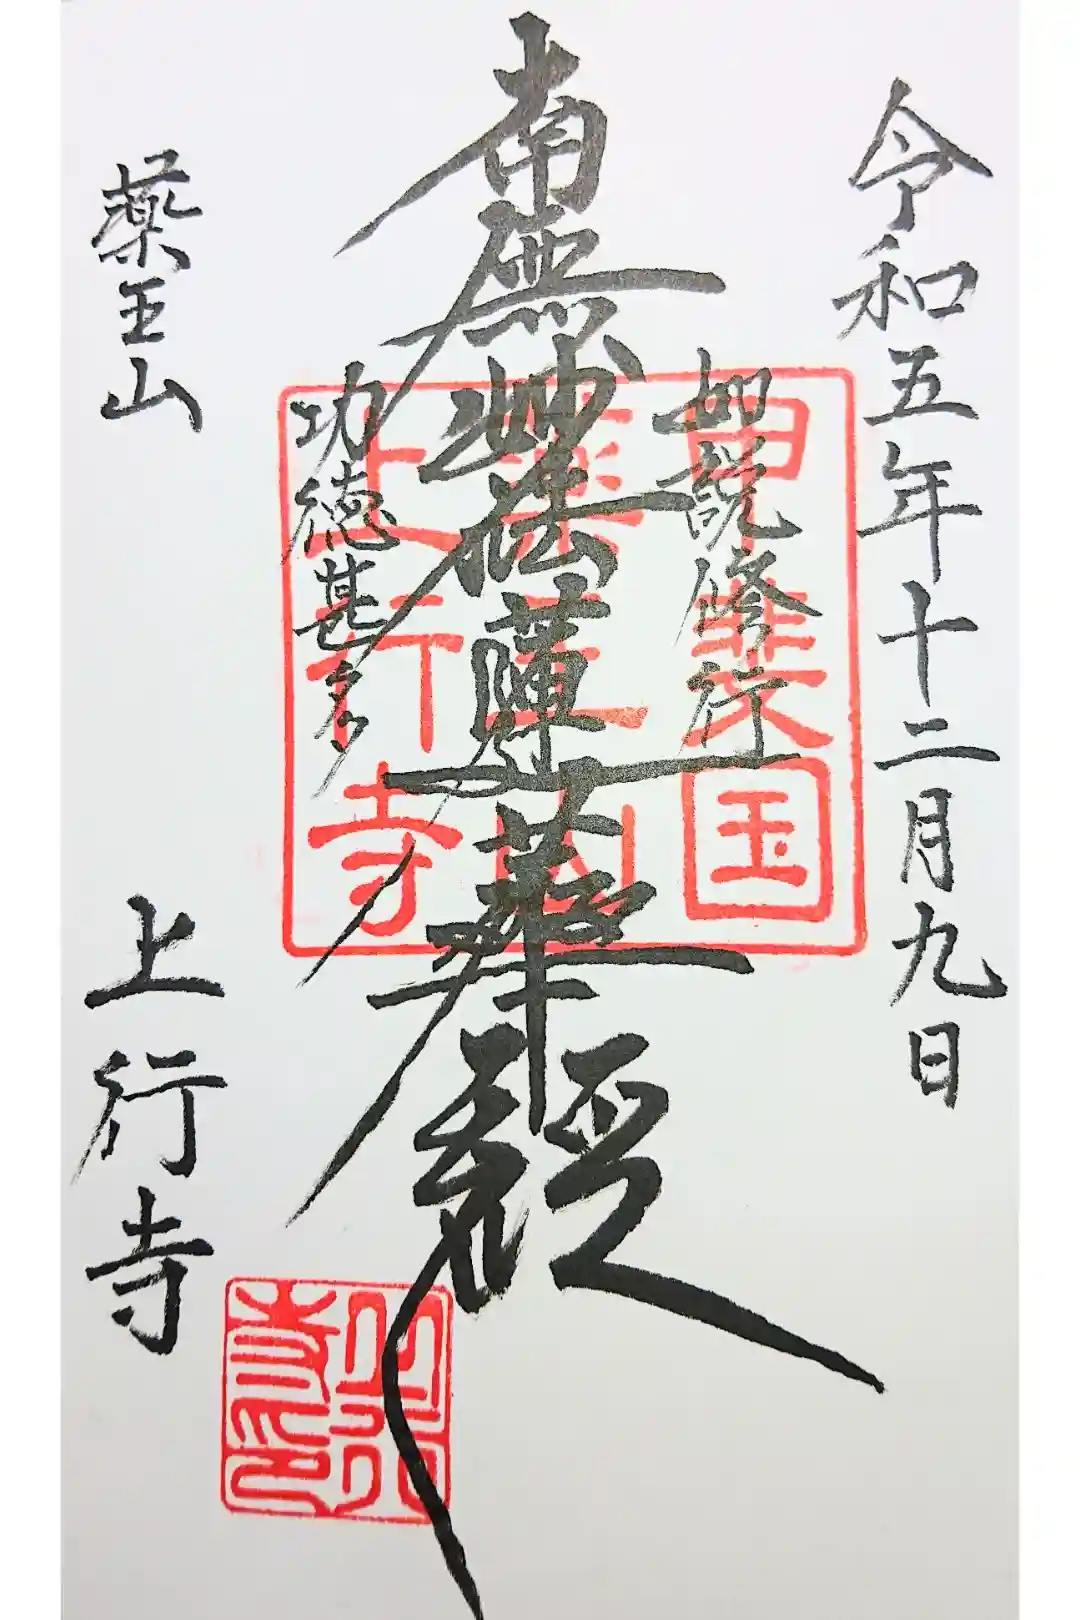 令和五年十二月九日
如説修行
南無妙法蓮華経
功徳甚多
薬王山
上行寺
甲斐国
薬王山
上行寺